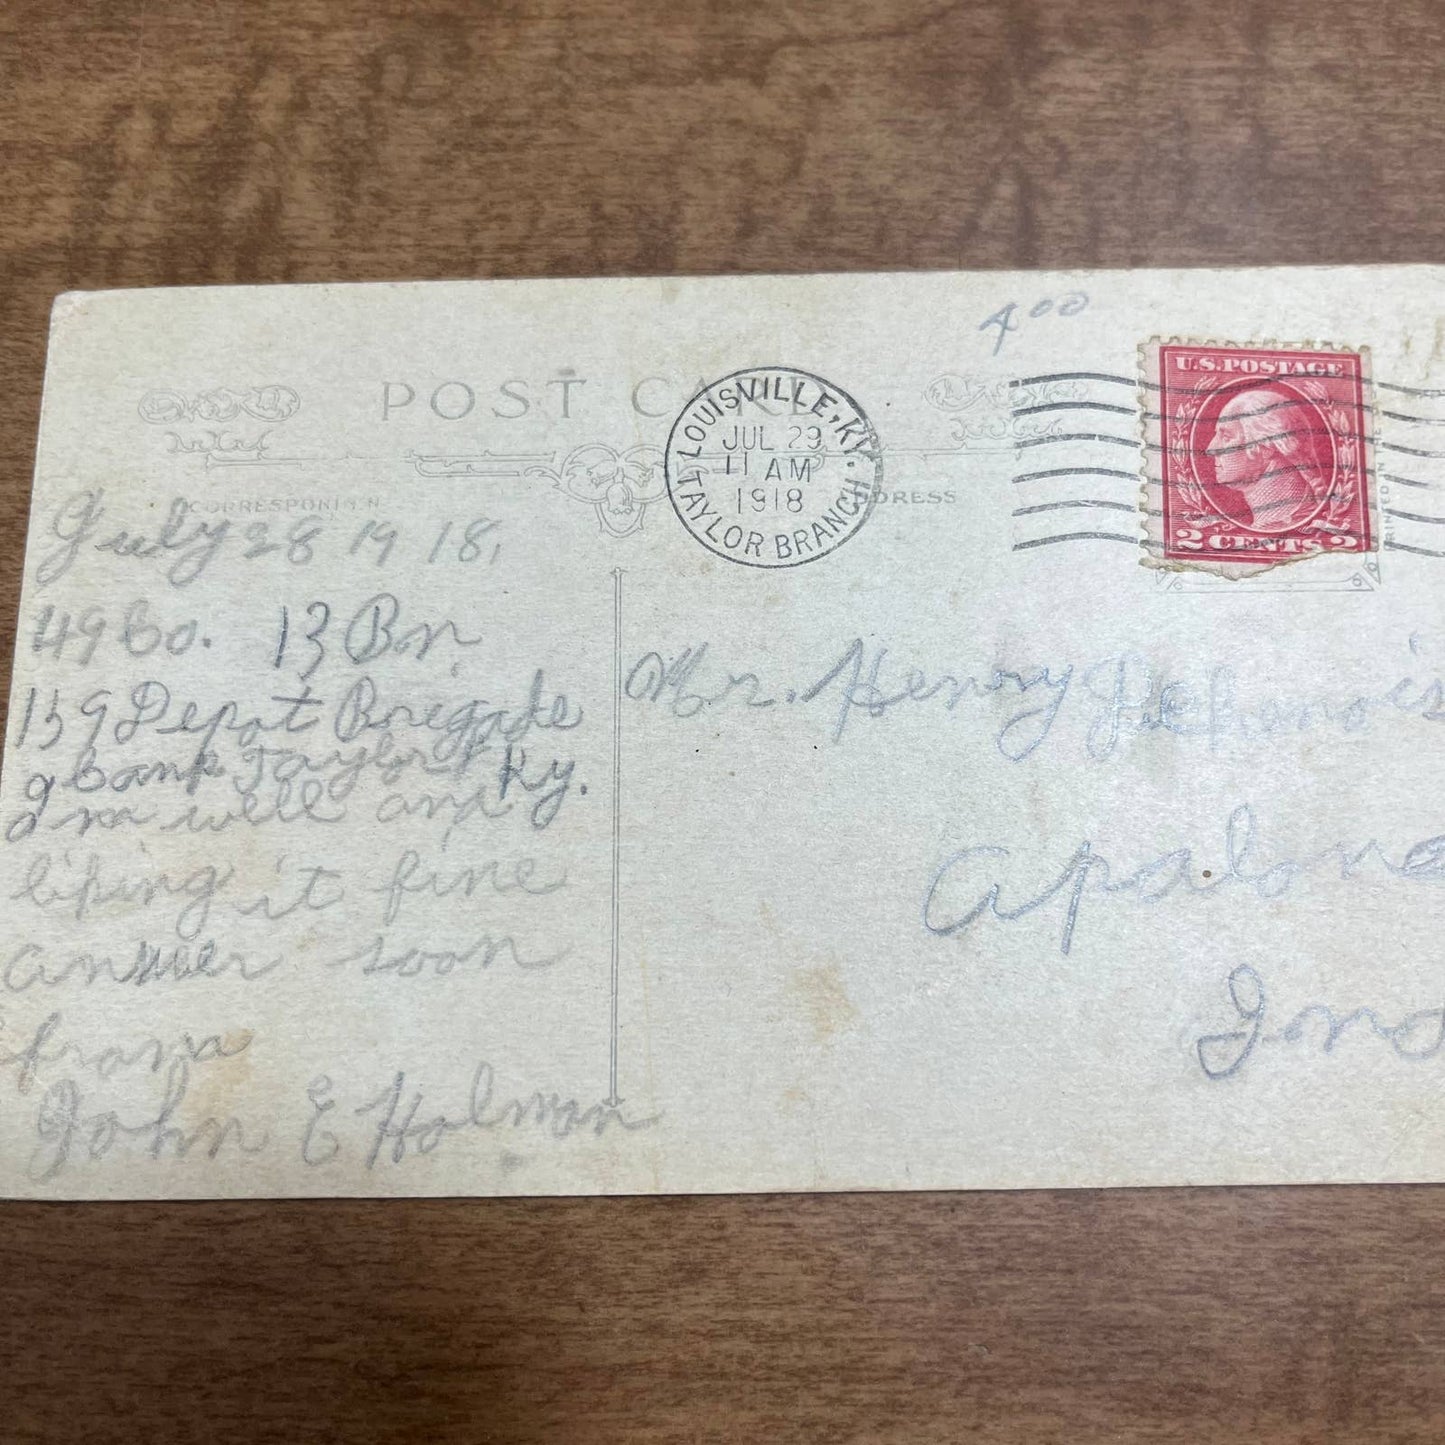 4 00
POST CARD
U.S. POSTAGE
2 CENTS 2
LOUISVILLE, KY.
JUL 29
11 AM
1918
TAYLOR BRANCH
CORRESPON
ADDRESS
PRINTED IN
July 28 19 18,
49 Co. 13 Bn.
159 Depot Brigade
Camp Taylor Ky.
I m well and
liking it fine
answer soon
from
John E Holman
Mr. Henry
Apalona
Ind